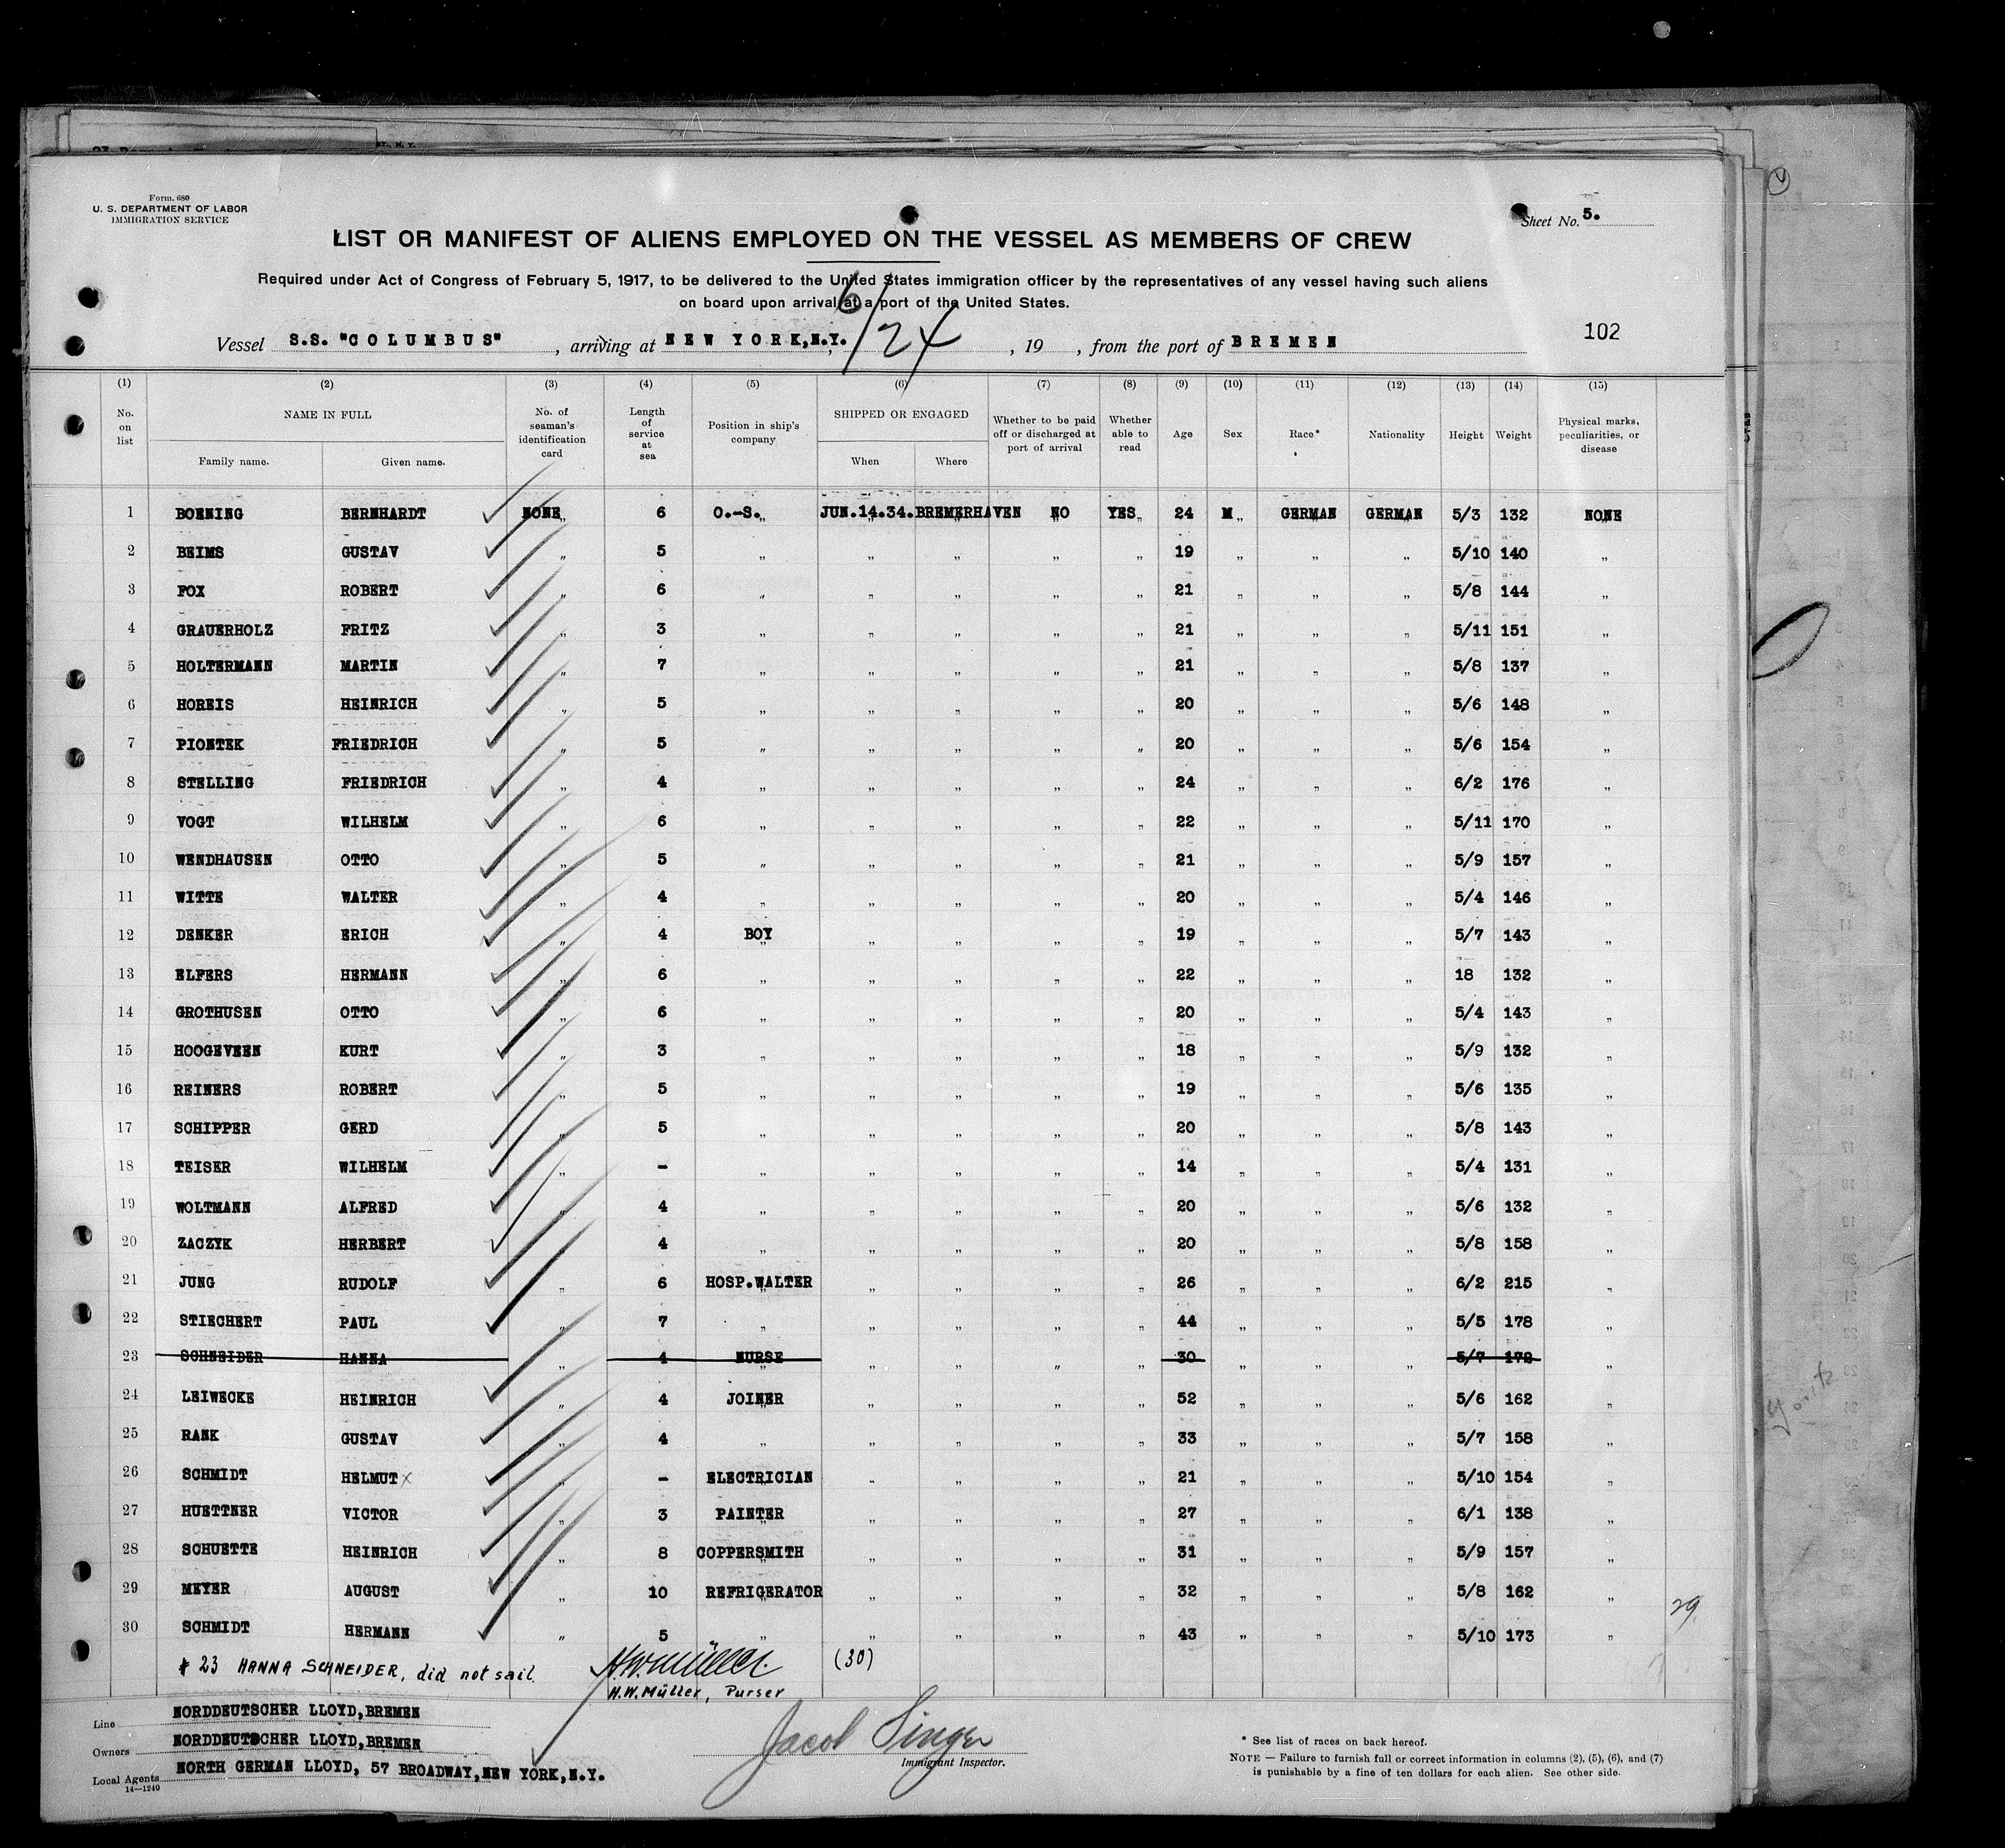 Form. 680
U. S. DEPARTMENT OF LABOR
IMMIGRATION SERVICE
Sheet No. 5.
LIST OR MANIFEST OF ALIENS EMPLOYED ON THE VESSEL AS MEMBERS OF CREW
Required under Act of Congress of February 5, 1917, to be delivered to the United States immigration officer by the representatives of any vessel having such aliens
on board upon arrival at a port of the United States.
Vessel S.S. "COLUMBUS", arriving at NEW YORK,N.Y., 6/24, 19 , from the port of BREMEN
102
(1) (2) (3) (4) (5) (6) (7) (8) (9) (10) (11) (12) (13) (14) (15)
No. on list NAME IN FULL Family name. Given name. No. of seaman's identification card Length of service at sea Position in ship's company SHIPPED OR ENGAGED When Where Whether to be paid off or discharged at port of arrival Whether able to read Age Sex Race* Nationality Height Weight Physical marks, peculiarities, or disease
1 BOENING BERNHARDT NONE 6 O.-S. JUN.14.34. BREMERHAVEN NO YES 24 M GERMAN GERMAN 5/3 132 NONE
2 BEIMS GUSTAV " 5 " " " " " 19 " " " 5/10 140 "
3 FOX ROBERT " 6 " " " " " 21 " " " 5/8 144 "
4 GRAUERHOLZ FRITZ " 3 " " " " " 21 " " " 5/11 151 "
5 HOLTERMANN MARTIN " 7 " " " " " 21 " " " 5/8 137 "
6 HOREIS HEINRICH " 5 " " " " " 20 " " " 5/6 148 "
7 PIONTEK FRIEDRICH " 5 " " " " " 20 " " " 5/6 154 "
8 STELLING FRIEDRICH " 4 " " " " " 24 " " " 6/2 176 "
9 VOGT WILHELM " 6 " " " " " 22 " " " 5/11 170 "
10 WENDHAUSEN OTTO " 5 " " " " " 21 " " " 5/9 157 "
11 WITTE WALTER " 4 " " " " " 20 " " " 5/4 146 "
12 DENKER ERICH " 4 BOY " " " " 19 " " " 5/7 143 "
13 ELFERS HERMANN " 6 " " " " " 22 " " " 18 132 "
14 GROTHUSEN OTTO " 6 " " " " " 20 " " " 5/4 143 "
15 HOOGEVEEN KURT " 3 " " " " " 18 " " " 5/9 132 "
16 REINERS ROBERT " 5 " " " " " 19 " " " 5/6 135 "
17 SCHIPPER GERD " 5 " " " " " 20 " " " 5/8 143 "
18 TEISER WILHELM " - " " " " " 14 " " " 5/4 131 "
19 WOLTMANN ALFRED " 4 " " " " " 20 " " " 5/6 132 "
20 ZACZYK HERBERT " 4 " " " " " 20 " " " 5/8 158 "
21 JUNG RUDOLF " 6 HOSP.WALTER " " " " 26 " " " 6/2 215 "
22 STIECHERT PAUL " 7 " " " " " 44 " " " 5/5 178 "
23 SCHNEIDER HANNA " 4 NURSE " " " " 30 " " " 5/7 172 "
24 LEIWECKE HEINRICH " 4 JOINER " " " " 52 " " " 5/6 162 "
25 RANK GUSTAV " 4 " " " " " 33 " " " 5/7 158 "
26 SCHMIDT HELMUT x " - ELECTRICIAN " " " " 21 " " " 5/10 154 "
27 HUETTNER VICTOR " 3 PAINTER " " " " 27 " " " 6/1 138 "
28 SCHUETTE HEINRICH " 8 COPPERSMITH " " " " 31 " " " 5/9 157 "
29 MEYER AUGUST " 10 REFRIGERATOR " " " " 32 " " " 5/8 162 "
29
30 SCHMIDT HERMANN " 5 " " " " " 43 " " " 5/10 173 "
# 23 HANNA SCHNEIDER, did not sail. H.W.Müller. (30)
H.W.Müller, Purser
Line NORDDEUTSCHER LLOYD,BREMEN
Owners NORDDEUTSCHER LLOYD,BREMEN
Local Agents NORTH GERMAN LLOYD, 57 BROADWAY,NEW YORK,N.Y.
14—1240
Jacob Singer
Immigrant Inspector.
* See list of races on back hereof.
NOTE — Failure to furnish full or correct information in columns (2), (5), (6), and (7)
is punishable by a fine of ten dollars for each alien. See other side.